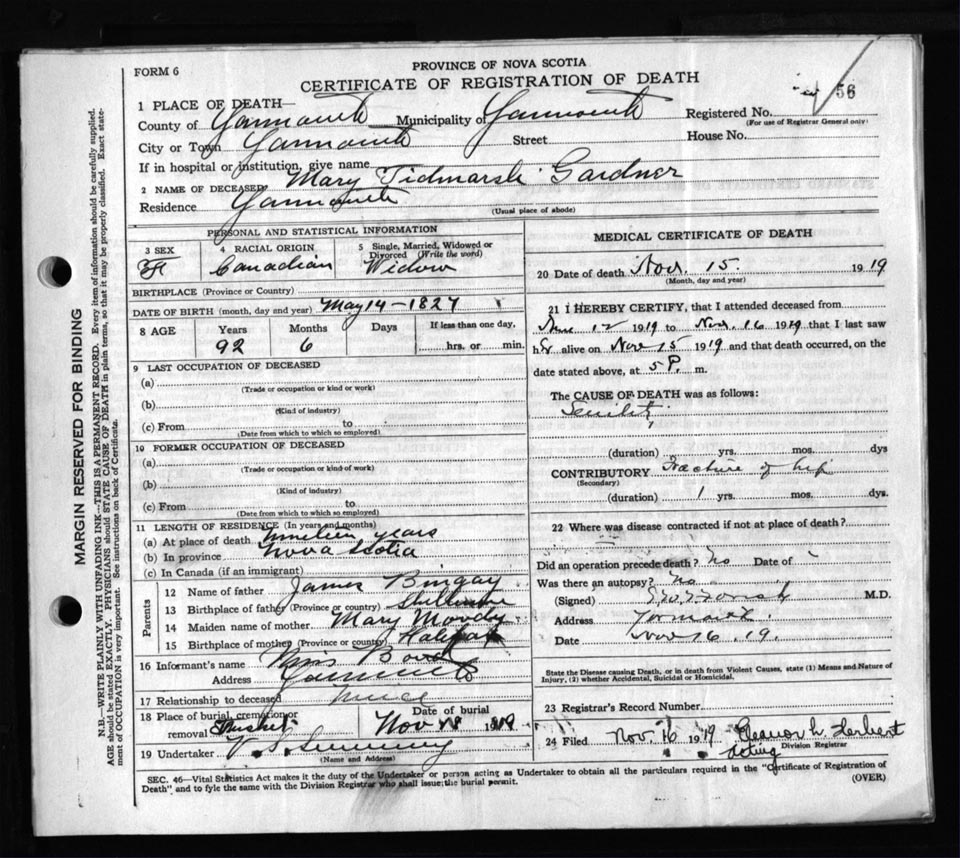 PROVINCE OF NOVA SCOTIA
FORM 6
CERTIFICATE OF REGISTRATION OF DEATH
56
1 PLACE OF DEATH—
County of Yarmouth Municipality of Yarmouth Registered No.
(For use of Registrar General only)
City or Town Yarmouth Street House No.
If in hospital or institution, give name
2 NAME OF DECEASED Mary Tidmarsh Gardner
Residence Yarmouth
(Usual place of abode)
PERSONAL AND STATISTICAL INFORMATION
3 SEX 4 RACIAL ORIGIN 5 Single, Married, Widowed or Divorced (Write the word)
Canadian Widow
BIRTHPLACE (Province or Country)
DATE OF BIRTH (month, day and year) May 14 - 1827
8 AGE Years Months Days If less than one day,
92 6 hrs. or min.
9 LAST OCCUPATION OF DECEASED
(a)
(Trade or occupation or kind or work)
(b)
(Kind of industry)
(c) From to
(Date from which to which so employed)
10 FORMER OCCUPATION OF DECEASED
(a)
(Trade or occupation or kind of work)
(b)
(Kind of industry)
(c) From to
(Date from which to which so employed)
11 LENGTH OF RESIDENCE (In years and months)
(a) At place of death nineteen years
(b) In province Nova Scotia
(c) In Canada (if an immigrant)
Parents
12 Name of father James Bingay
13 Birthplace of father (Province or country) Shelburne
14 Maiden name of mother Mary Moody
15 Birthplace of mother (Province or country) Halifax
16 Informant's name
Address Yarmouth
17 Relationship to deceased Niece
18 Place of burial, cremation or removal Date of burial
Nov 18 1919
19 Undertaker
(Name and Address)
MEDICAL CERTIFICATE OF DEATH
20 Date of death Nov. 15. 1919
(Month, day and year)
21 I HEREBY CERTIFY, that I attended deceased from
June 12 1919 to Nov. 16 1919 that I last saw
her alive on Nov 15 1919 and that death occurred, on the
date stated above, at 5 P. m.
The CAUSE OF DEATH was as follows:
Senility
(duration) yrs. mos. dys
CONTRIBUTORY Fracture of hip
(Secondary)
(duration) 1 yrs. mos. dys.
22 Where was disease contracted if not at place of death?
Did an operation precede death? No Date of
Was there an autopsy? No
(Signed) M.D.
Address Yarmouth
Date Nov 16. 19.
State the Disease causing Death, or in death from Violent Causes, state (1) Means and Nature of
Injury, (2) whether Accidental, Suicidal or Homicidal.
23 Registrar's Record Number
24 Filed Nov. 16 1919 Eleanor L. Herbert
Acting Division Registrar
SEC. 46—Vital Statistics Act makes it the duty of the Undertaker or person acting as Undertaker to obtain all the particulars required in the "Certificate of Registration of
Death" and to fyle the same with the Division Registrar who shall issue the burial permit.
(OVER)
MARGIN RESERVED FOR BINDING
N.B.—WRITE PLAINLY WITH UNFADING INK—THIS IS A PERMANENT RECORD. Every item of information should be carefully supplied.
AGE should be stated EXACTLY. PHYSICIANS should STATE CAUSE OF DEATH in plain terms, so that it may be properly classified. Exact state-
ment of OCCUPATION is very important. See instructions on back of Certificate.